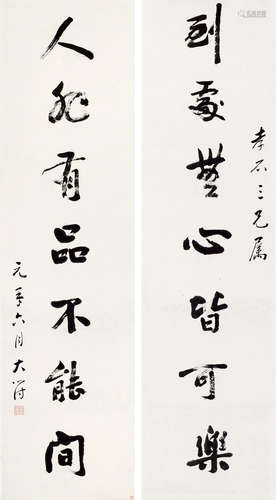 到處無心皆可樂
孝石三兄属
人非有品不能間
元年六月大